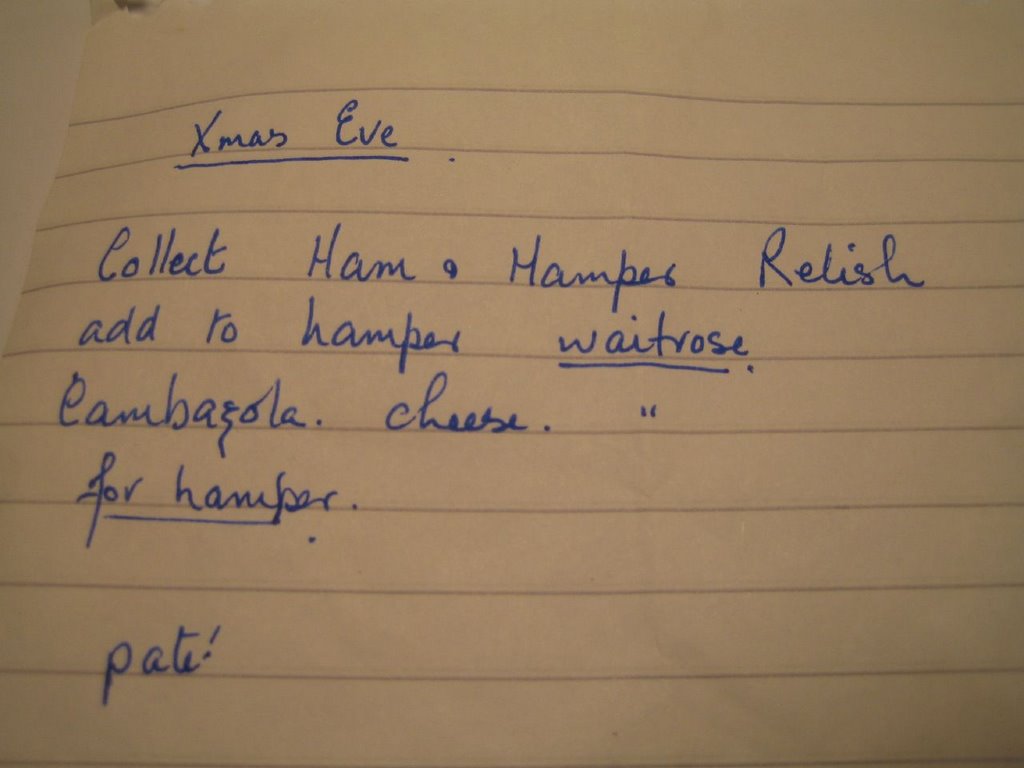 Xmas Eve.
Collect Ham & Hamper Relish
add to hamper waitrose.
Cambazola. cheese. "
for hamper.
paté!